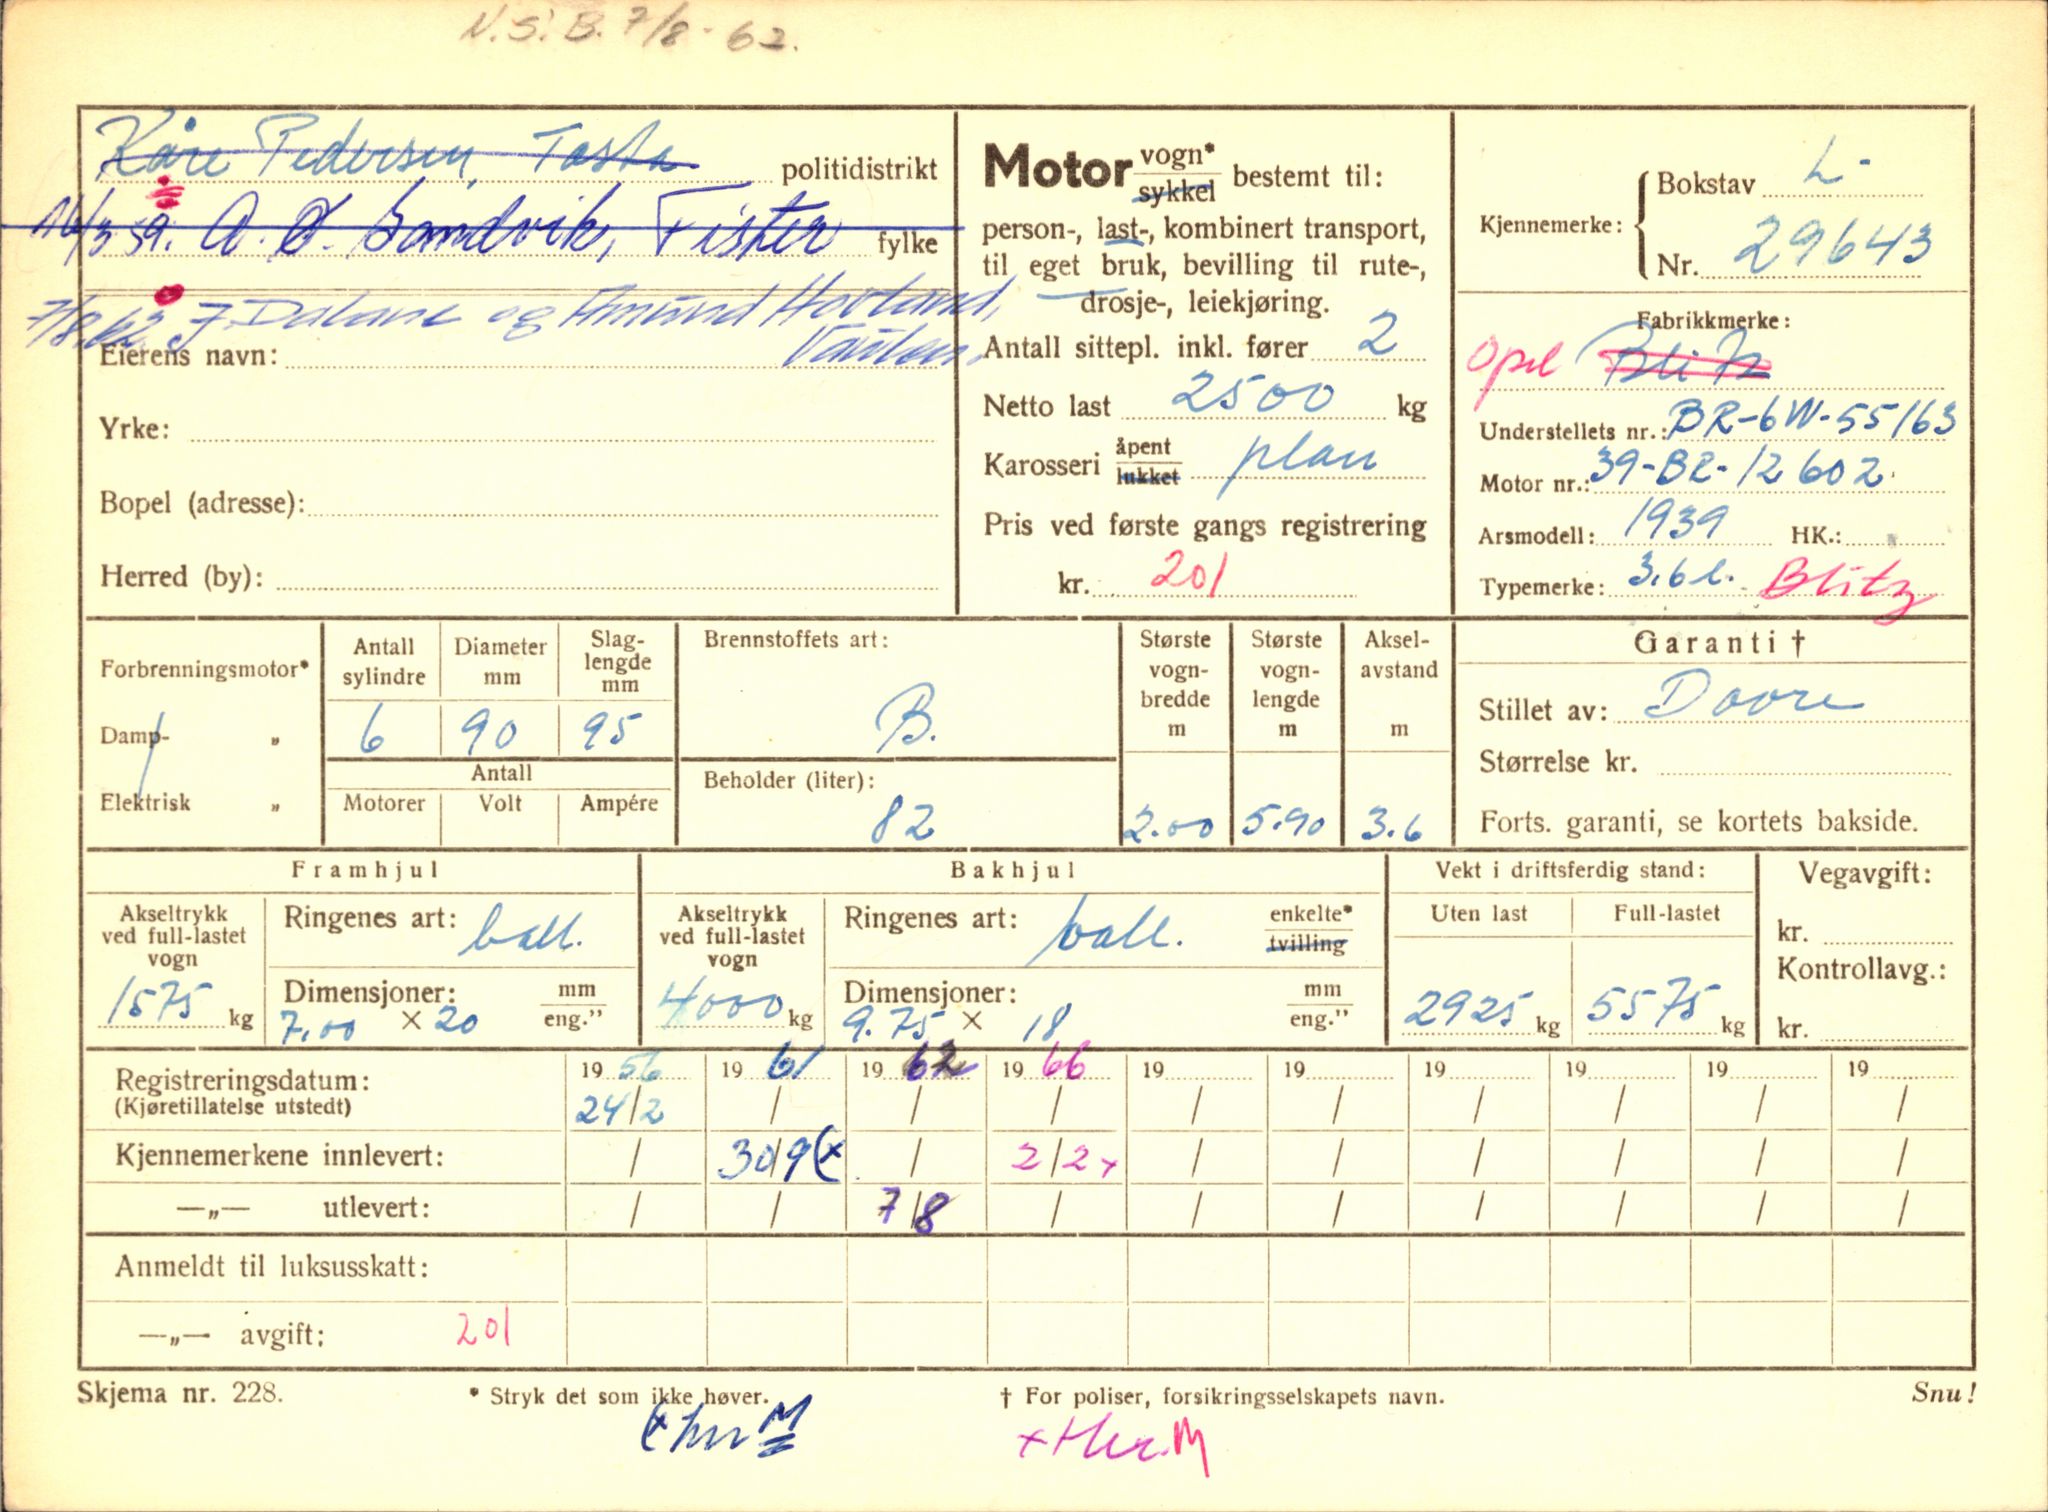 N.S.B. 7/8-62.
Kåre Pedersen, Tasta politidistrikt
16/3 59. A. Ø. Sandvik, Fister fylke
7/8.62 J. Dalane og Amund Hovland,
Eierens navn:
Yrke:
Bopel (adresse):
Herred (by):
Motor vogn* sykkel bestemt til:
person-, last-, kombinert transport,
til eget bruk, bevilling til rute-,
drosje-, leiekjøring.
Antall sittepl. inkl. fører 2
Netto last 2500 kg
Karosseri åpent lukket plan
Pris ved første gangs registrering
kr. 201
Kjennemerke: Bokstav L-
Nr. 29643
Fabrikkmerke:
Opel Blitz
Understellets nr.: BR-6W-55163
Motor nr.: 39-BR-12602
Arsmodell: 1939 HK.:
Typemerke: 3,6 l. Blitz
Forbrenningsmotor*
Damp- „
Elektrisk „
Antall sylindre 6
Diameter mm 90
Slag-lengde mm 95
Antall
Motorer Volt Ampére
Brennstoffets art:
B.
Beholder (liter):
82
Største vogn-bredde m 2.00
Største vogn-lengde m 5.90
Aksel-avstand m 3.6
Garanti †
Stillet av: Dovre
Størrelse kr.
Forts. garanti, se kortets bakside.
Framhjul
Akseltrykk ved full-lastet vogn
1575 kg
Ringenes art: ball.
Dimensjoner: mm eng."
7,00 × 20
Bakhjul
Akseltrykk ved full-lastet vogn
4000 kg
Ringenes art: ball. enkelte* tvilling
Dimensjoner: mm eng."
9.75 × 18
Vekt i driftsferdig stand:
Uten last Full-lastet
2925 kg 5575 kg
Vegavgift:
kr.
Kontrollavg.:
kr.
Registreringsdatum: 19 56 19 61 19 62 19 66 19 19 19 19 19 19
(Kjøretillatelse utstedt) 24/2 / / / / / / / / /
Kjennemerkene innlevert: / 30/9 (x / 2/2 x / / / / / /
—„— utlevert: / / 7/8 / / / / / / /
Anmeldt til luksusskatt:
—„— avgift: 201
Skjema nr. 228. * Stryk det som ikke høver. † For poliser, forsikringsselskapets navn. Snu!